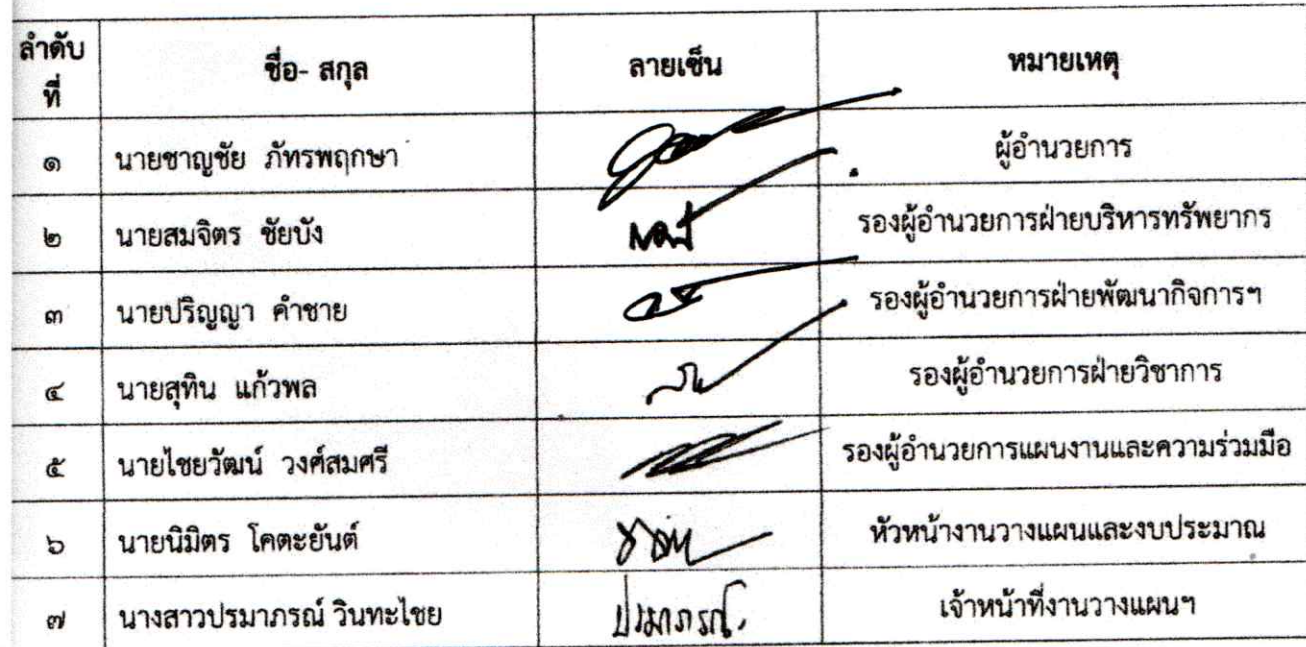 ลำดับ
ที่
ชื่อ- สกุล
ลายเซ็น
หมายเหตุ
๑ นายชาญชัย ภัทรพฤกษา ผู้อำนวยการ
๒ นายสมจิตร ชัยบัง รองผู้อำนวยการฝ่ายบริหารทรัพยากร
๓ นายปริญญา คำชาย รองผู้อำนวยการฝ่ายพัฒนากิจการฯ
๔ นายสุทิน แก้วพล รองผู้อำนวยการฝ่ายวิชาการ
๕ นายไชยวัฒน์ วงศ์สมศรี รองผู้อำนวยการแผนงานและความร่วมมือ
๖ นายนิมิตร โคตะยันต์ หัวหน้างานวางแผนและงบประมาณ
๗ นางสาวปรมาภรณ์ วินทะไชย ปรมาภรณ์. เจ้าหน้าที่งานวางแผนฯ